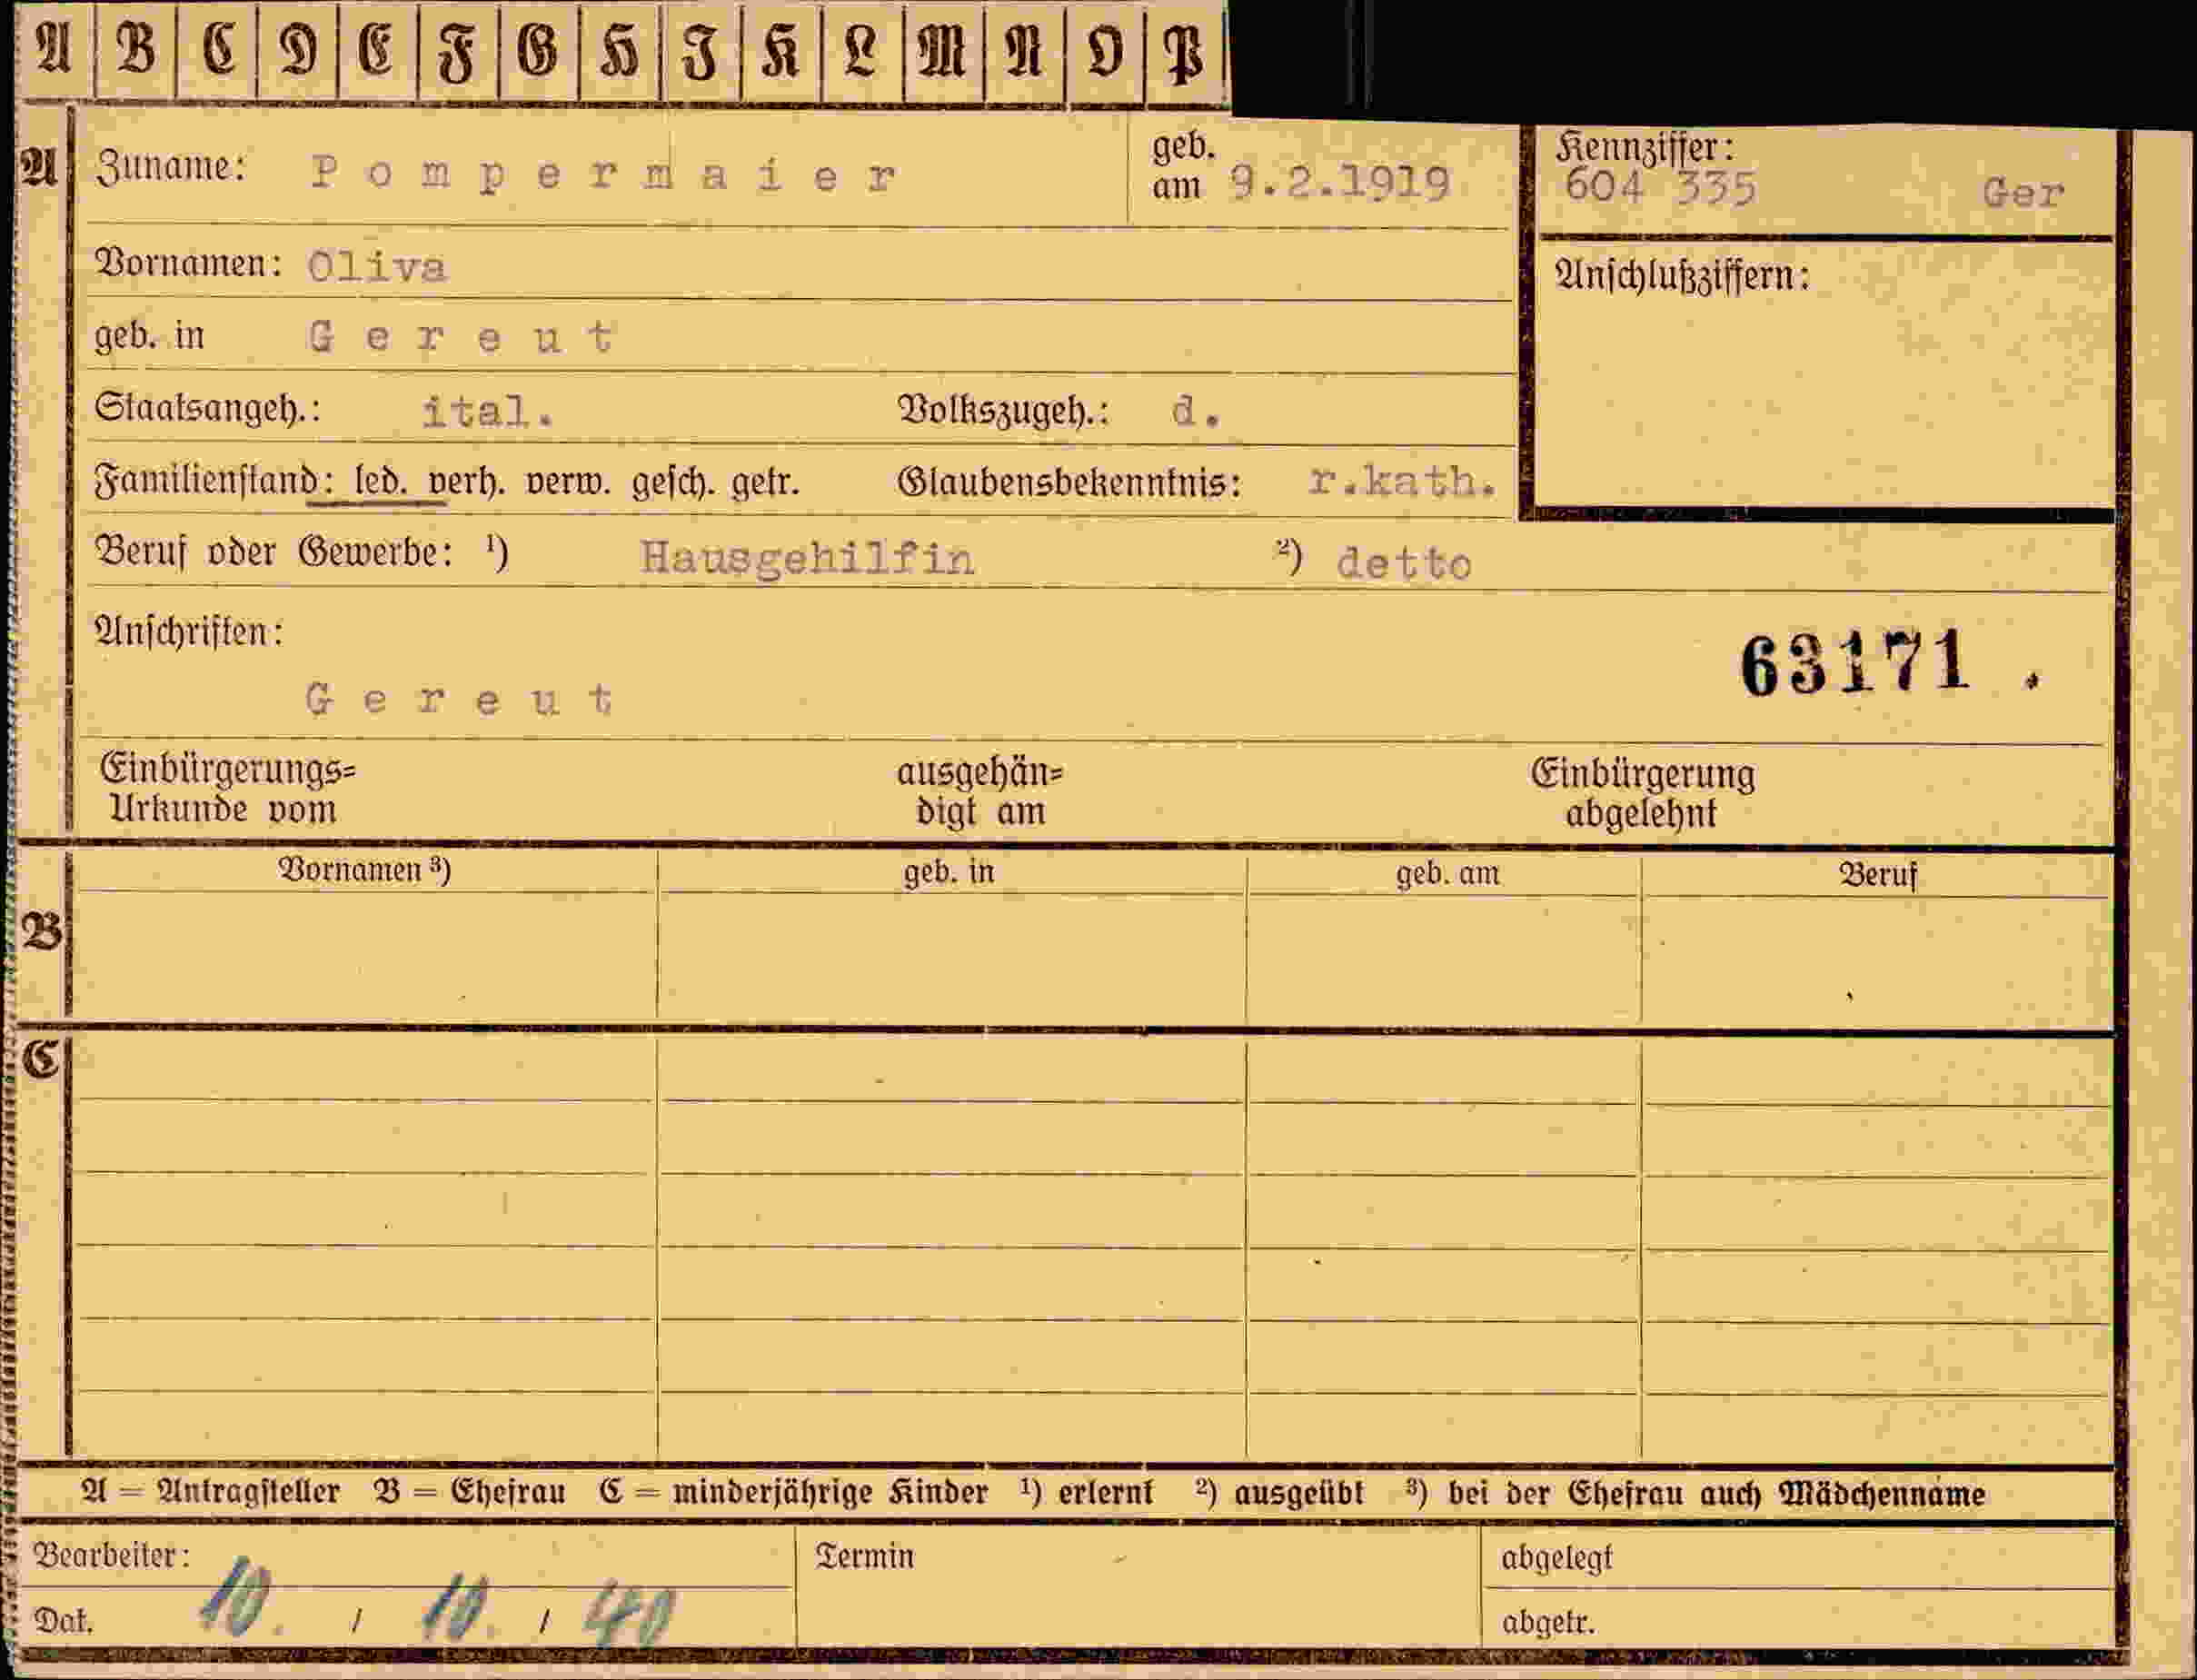 A B C D E F G H J K L M N O P
A Zuname: Pompermaier geb. am 9.2.1919 Kennziffer: 604 335 Ger
Vornamen: Oliva Anschlußziffern:
geb. in Gereut
Staatsangeh.: ital. Volkszugeh.: d.
Familienstand: led. verh. verw. gesch. getr. Glaubensbekenntnis: r.kath.
Beruf oder Gewerbe: ¹) Hausgehilfin ²) detto
Anschriften:
63171 .
Gereut
Einbürgerungs= ausgehän= Einbürgerung
Urkunde vom digt am abgelehnt
Vornamen ³) geb. in geb. am Beruf
B
C
A = Antragsteller B = Ehefrau C = minderjährige Kinder ¹) erlernt ²) ausgeübt ³) bei der Ehefrau auch Mädchenname
Bearbeiter: Termin abgelegt
Dat. 10. / 10. / 40 abgetr.